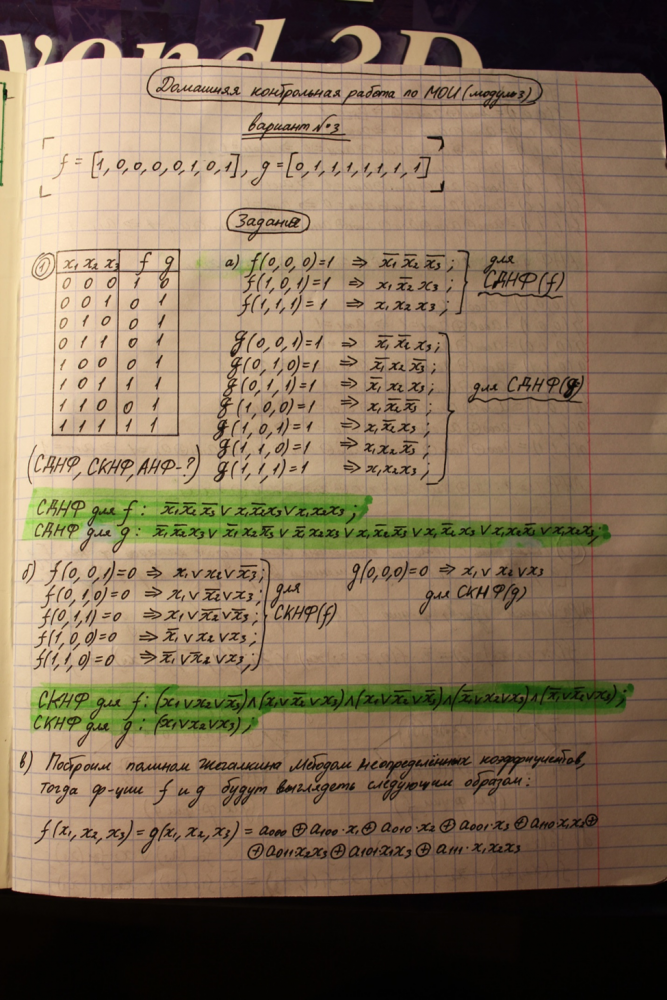 yond 3D
Домашняя контрольная работа по МОИ (модуль 3)
вариант №3
f = [1, 0, 0, 0, 0, 1, 0, 1], g = [0, 1, 1, 1, 1, 1, 1, 1]
Задания
① x₁ x₂ x₃ f g
0 0 0 1 0
0 0 1 0 1
0 1 0 0 1
0 1 1 0 1
1 0 0 0 1
1 0 1 1 1
1 1 0 0 1
1 1 1 1 1
(СДНФ, СКНФ, АНФ-?)
а) f(0,0,0)=1 ⇒ x̅₁ x̅₂ x̅₃;
f(1,0,1)=1 ⇒ x₁ x̅₂ x₃;
f(1,1,1)=1 ⇒ x₁ x₂ x₃;
для
СДНФ(f)
g(0,0,1)=1 ⇒ x̅₁ x̅₂ x₃;
g(0,1,0)=1 ⇒ x̅₁ x₂ x̅₃;
g(0,1,1)=1 ⇒ x̅₁ x₂ x₃;
g(1,0,0)=1 ⇒ x₁ x̅₂ x̅₃;
g(1,0,1)=1 ⇒ x₁ x̅₂ x₃;
g(1,1,0)=1 ⇒ x₁ x₂ x̅₃;
g(1,1,1)=1 ⇒ x₁ x₂ x₃;
для СДНФ(g)
СДНФ для f: x̅₁x̅₂x̅₃ ∨ x₁x̅₂x₃ ∨ x₁x₂x₃;
СДНФ для g: x̅₁x̅₂x₃ ∨ x̅₁x₂x̅₃ ∨ x̅₁x₂x₃ ∨ x₁x̅₂x̅₃ ∨ x₁x̅₂x₃ ∨ x₁x₂x̅₃ ∨ x₁x₂x₃;
б) f(0,0,1)=0 ⇒ x₁ ∨ x₂ ∨ x̅₃;
f(0,1,0)=0 ⇒ x₁ ∨ x̅₂ ∨ x₃;
f(0,1,1)=0 ⇒ x₁ ∨ x̅₂ ∨ x̅₃;
f(1,0,0)=0 ⇒ x̅₁ ∨ x₂ ∨ x₃;
f(1,1,0)=0 ⇒ x̅₁ ∨ x̅₂ ∨ x₃;
для
СКНФ(f)
g(0,0,0)=0 ⇒ x₁ ∨ x₂ ∨ x₃
для СКНФ(g)
СКНФ для f: (x₁∨x₂∨x̅₃)∧(x₁∨x̅₂∨x₃)∧(x₁∨x̅₂∨x̅₃)∧(x̅₁∨x₂∨x₃)∧(x̅₁∨x̅₂∨x₃);
СКНФ для g: (x₁∨x₂∨x₃);
в) Построим полином Жегалкина методом неопределённых коэффициентов,
тогда ф-ции f и g будут выглядеть следующим образом:
f(x₁, x₂, x₃) = g(x₁, x₂, x₃) = a₀₀₀ ⊕ a₁₀₀·x₁ ⊕ a₀₁₀·x₂ ⊕ a₀₀₁·x₃ ⊕ a₁₁₀·x₁x₂ ⊕
⊕ a₀₁₁x₂x₃ ⊕ a₁₀₁x₁x₃ ⊕ a₁₁₁·x₁x₂x₃